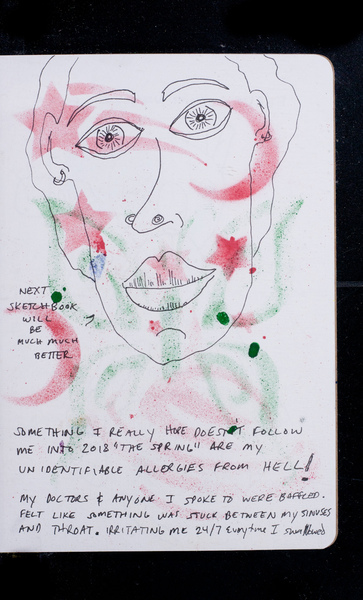 NEXT
SKETCHBOOK
WILL
BE
MUCH MUCH
BETTER
SOMETHING I REALLY HOPE DOESN'T FOLLOW
ME INTO 2018 "THE SPRING" ARE MY
UNIDENTIFIABLE ALLERGIES FROM HELL!
MY DOCTORS & ANYONE I SPOKE TO WERE BAFFLED.
FELT LIKE SOMETHING WAS STUCK BETWEEN MY SINUSES
AND THROAT. IRRITATING ME 24/7 Everytime I swallowed